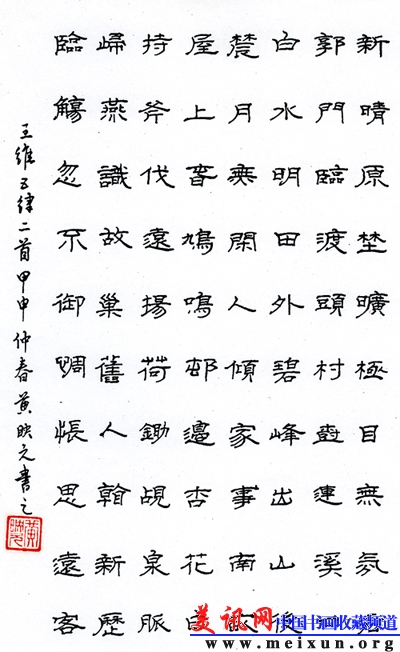 新晴原埜曠極目無氛垢
郭門臨渡頭村樹連溪口
白水明田外碧峰出山後
農月無閑人傾家事南畝
屋上春鳩鳴邨邊杏花白
持斧伐遠揚荷鋤覘泉脈
歸燕識故巢舊人看新歷
臨觴忽不御惆悵思遠客
王維五律二首甲申仲春黄映元書之
美讯网 中国书画收藏频道
www.meixun.org